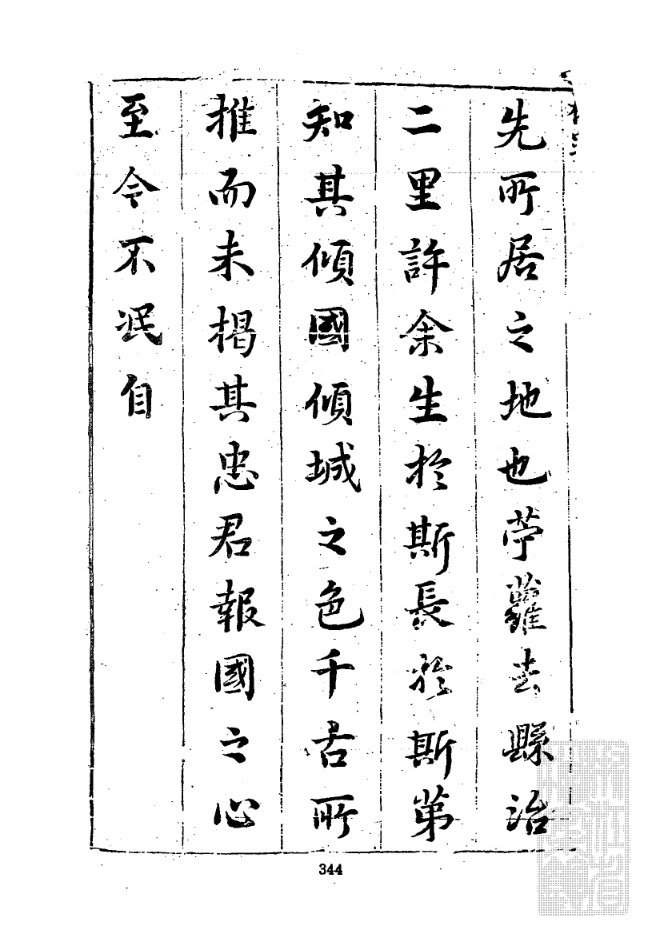 先所居之地也苧蘿去縣治
二里許余生於斯長於斯第
知其傾國傾城之色千古所
推而未揭其忠君報國之心
至今不泯自
344